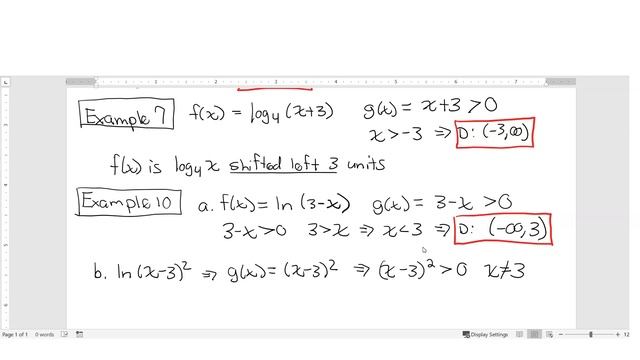 Example 7 f(x) = log₄(x+3) g(x) = x+3 >0
x>-3 ⇒ D: (-3,∞)
f(x) is log₄x shifted left 3 units
Example 10 a. f(x) = ln (3-x) g(x) = 3-x >0
3-x>0 3>x ⇒ x<3 ⇒ D: (-∞,3)
b. ln(x-3)² ⇒ g(x) = (x-3)² ⇒ (x-3)² >0 x≠3
Page 1 of 1 0 words Display Settings